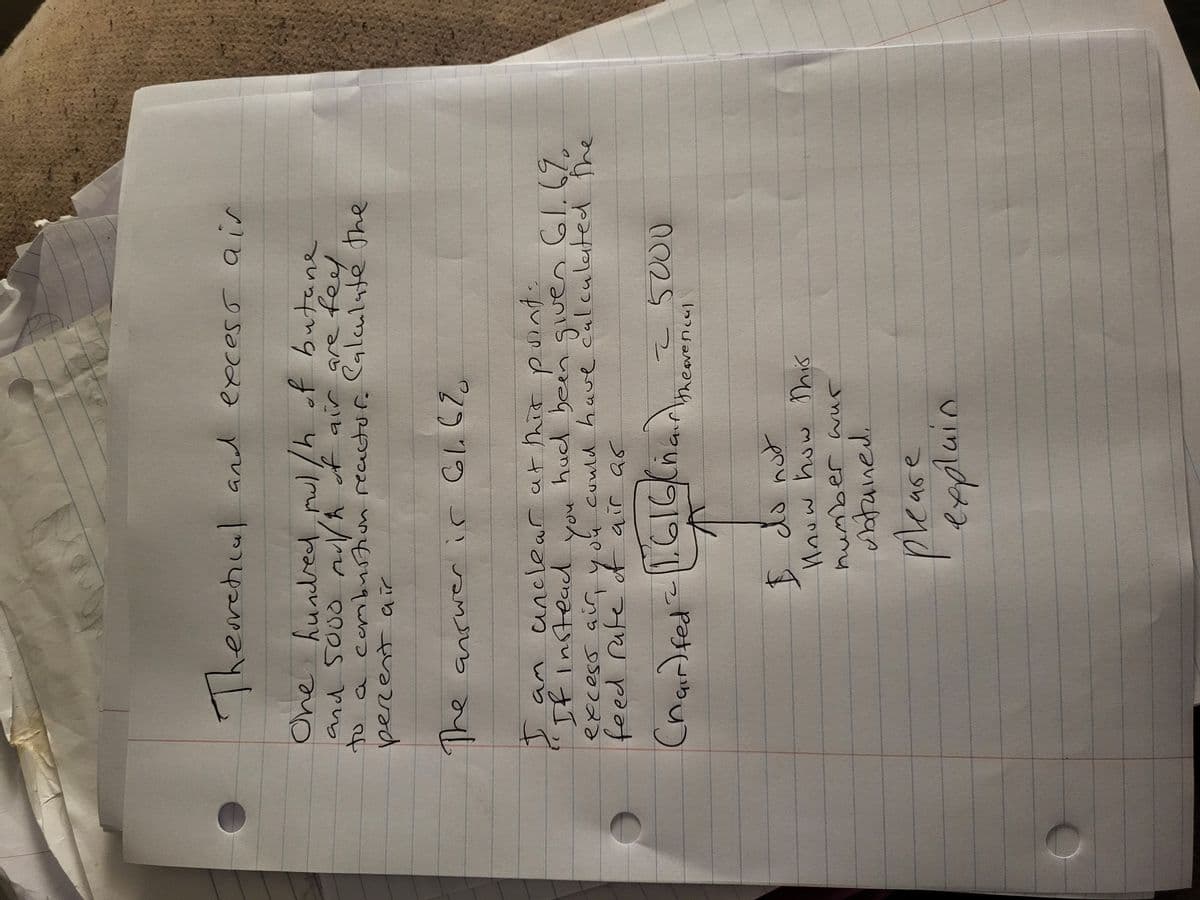 Theoretical and excess air
One hundred mol/h of butane
and 5000 mol/h of air are feef
to a combustion reactor. Calculate the
percent air
The answer is 61.6%
I am unclear at this point:
"If instead you had been given 61.6%
excess air, you could have calculated the
feed rate of air as
(nair)fed = 1.616(nair)theoretical = 5000
I do not
know how this
number was
obtained.
please
explain